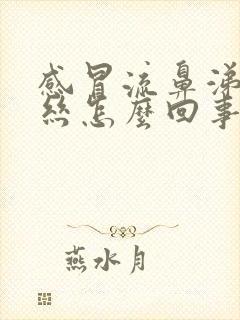 感冒流鼻涕
丝怎麼回事
燕水月